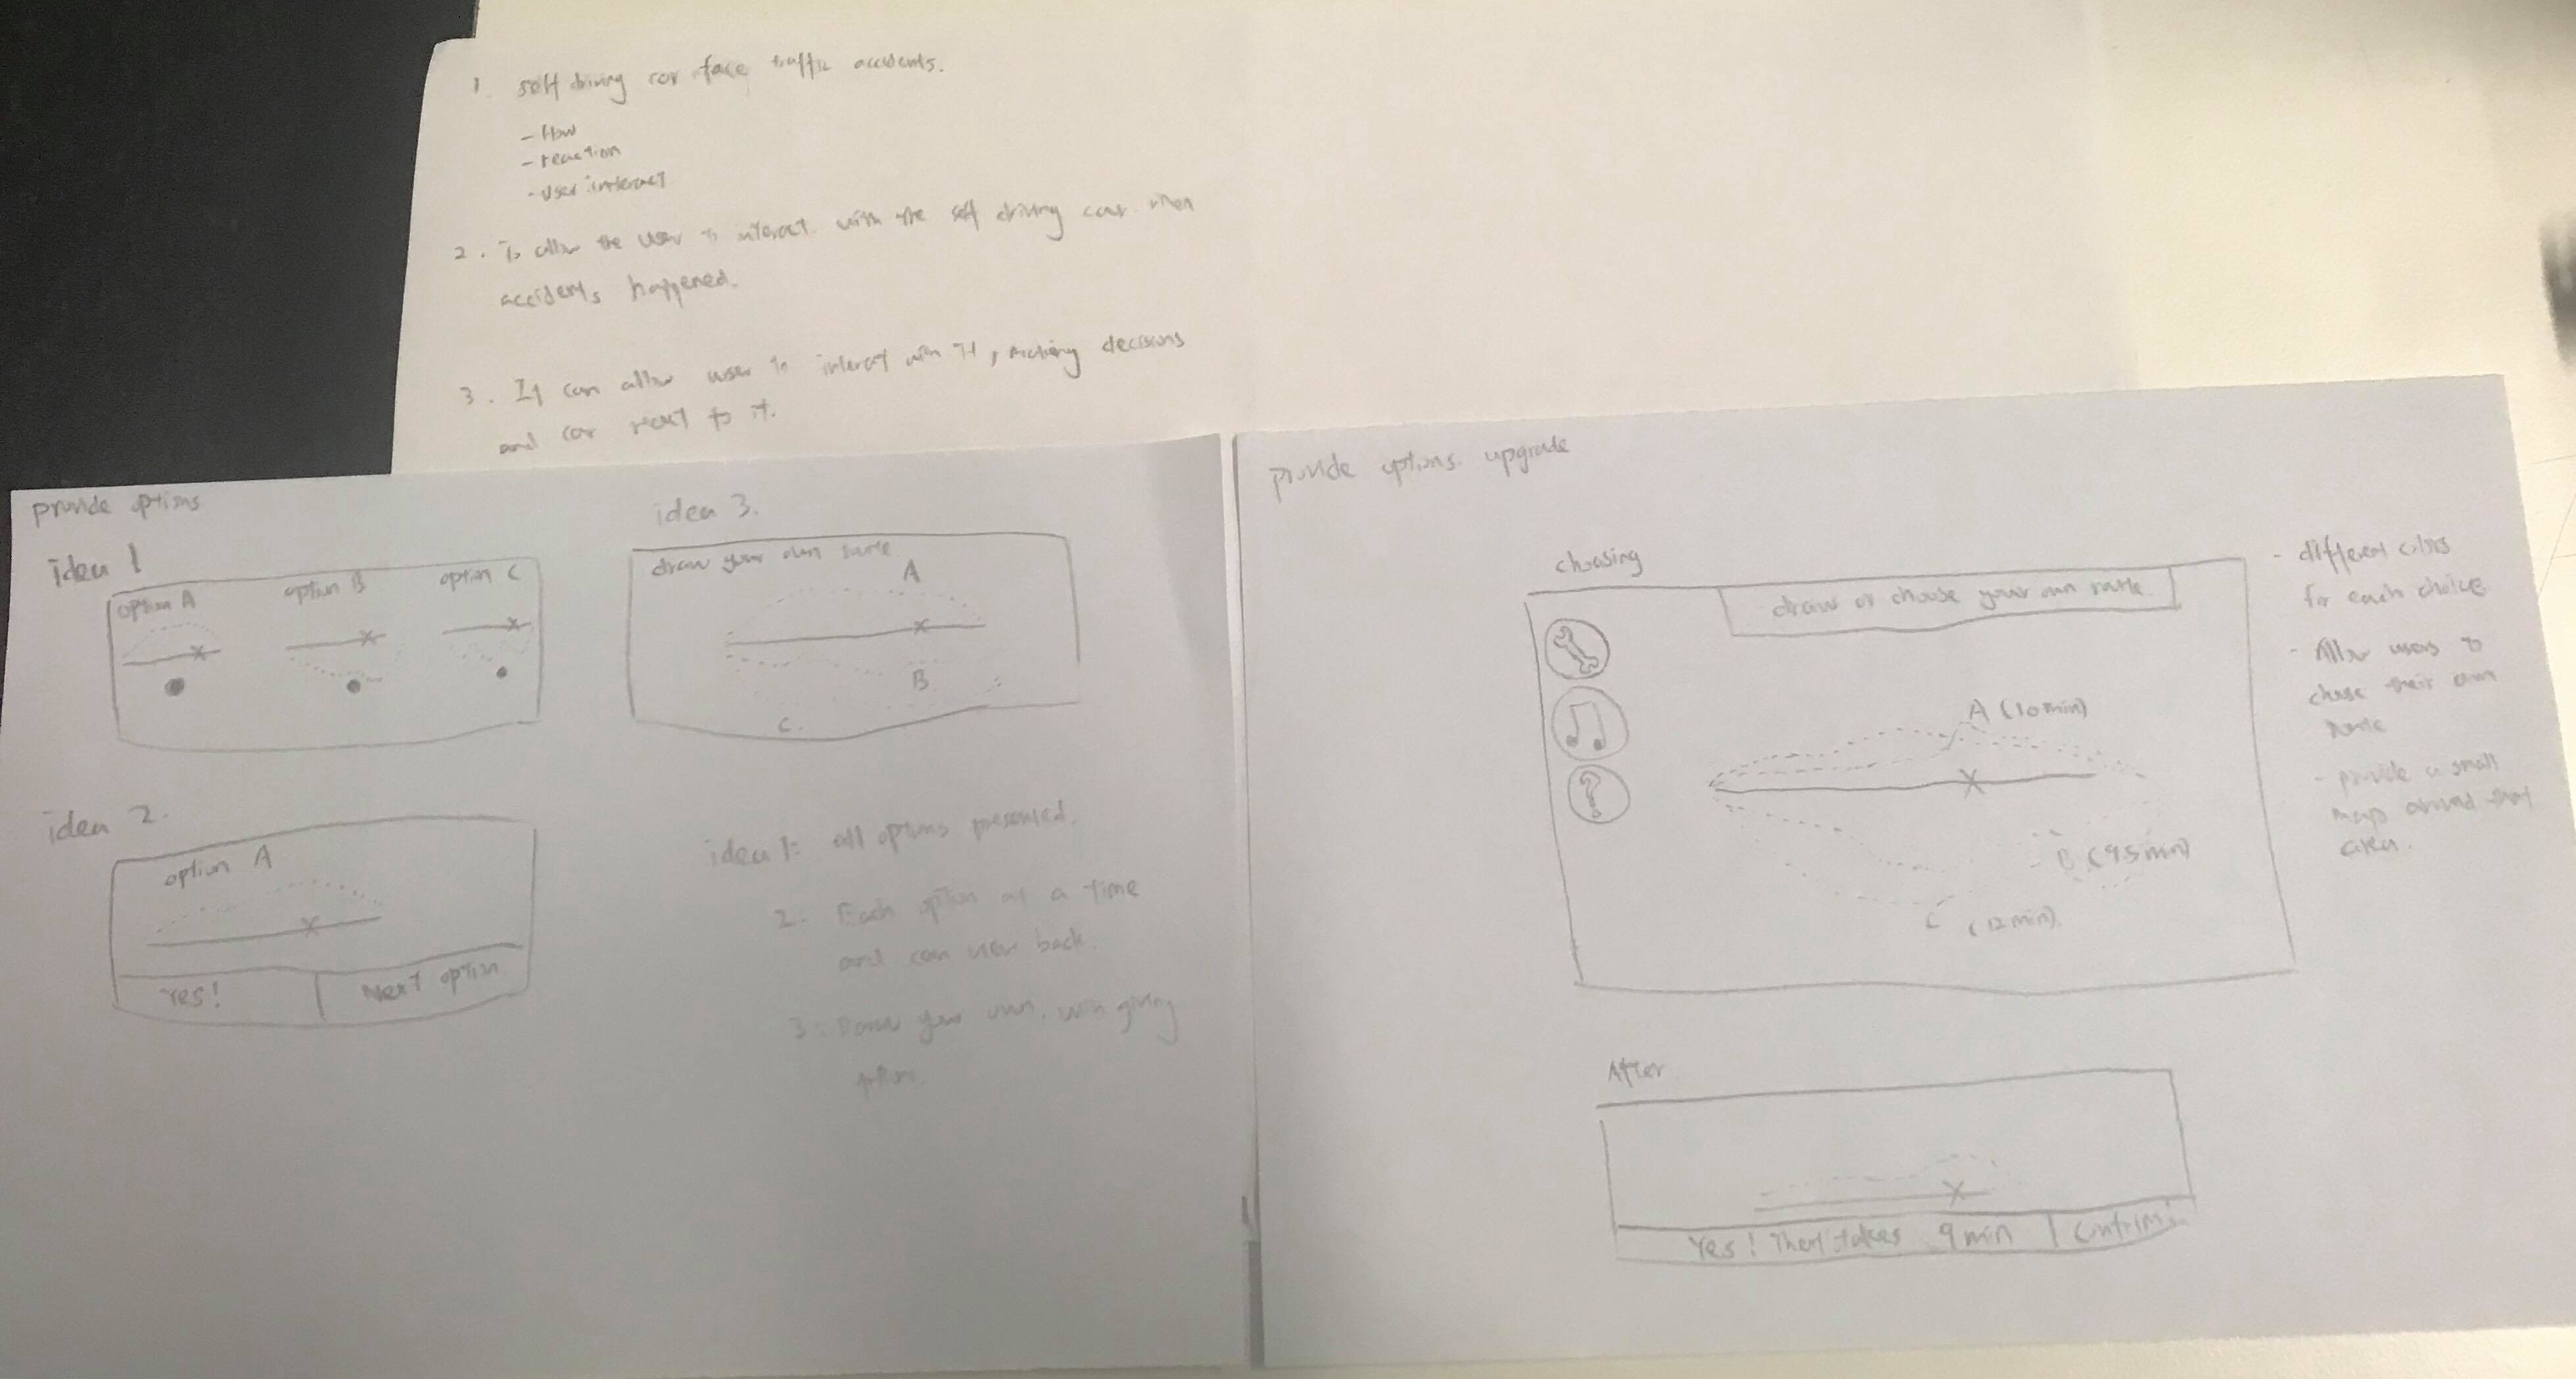 1. self driving car face traffic accidents.
- How
- reaction
- user interact
2. To allow the user to interact with the self driving car when
accidents happened.
3. It can allow user to interact with it, making decisions
and car react to it.
provide options
idea 1
option A
option B
option C
idea 2.
option A
Yes!
Next option
idea 3.
draw your own route
A
B
C.
idea 1: all options presented.
2: Each option at a time
and can view back.
3: Draw your own. with giving
provide options upgrade
choosing
draw or choose your own route.
A (10 min)
B (9.5 min)
C (12 min).
?
- different colors
for each choice
- Allow users to
chose their own
route
- provide a small
map around that
area.
After
Yes! That takes 9 min
Confirm